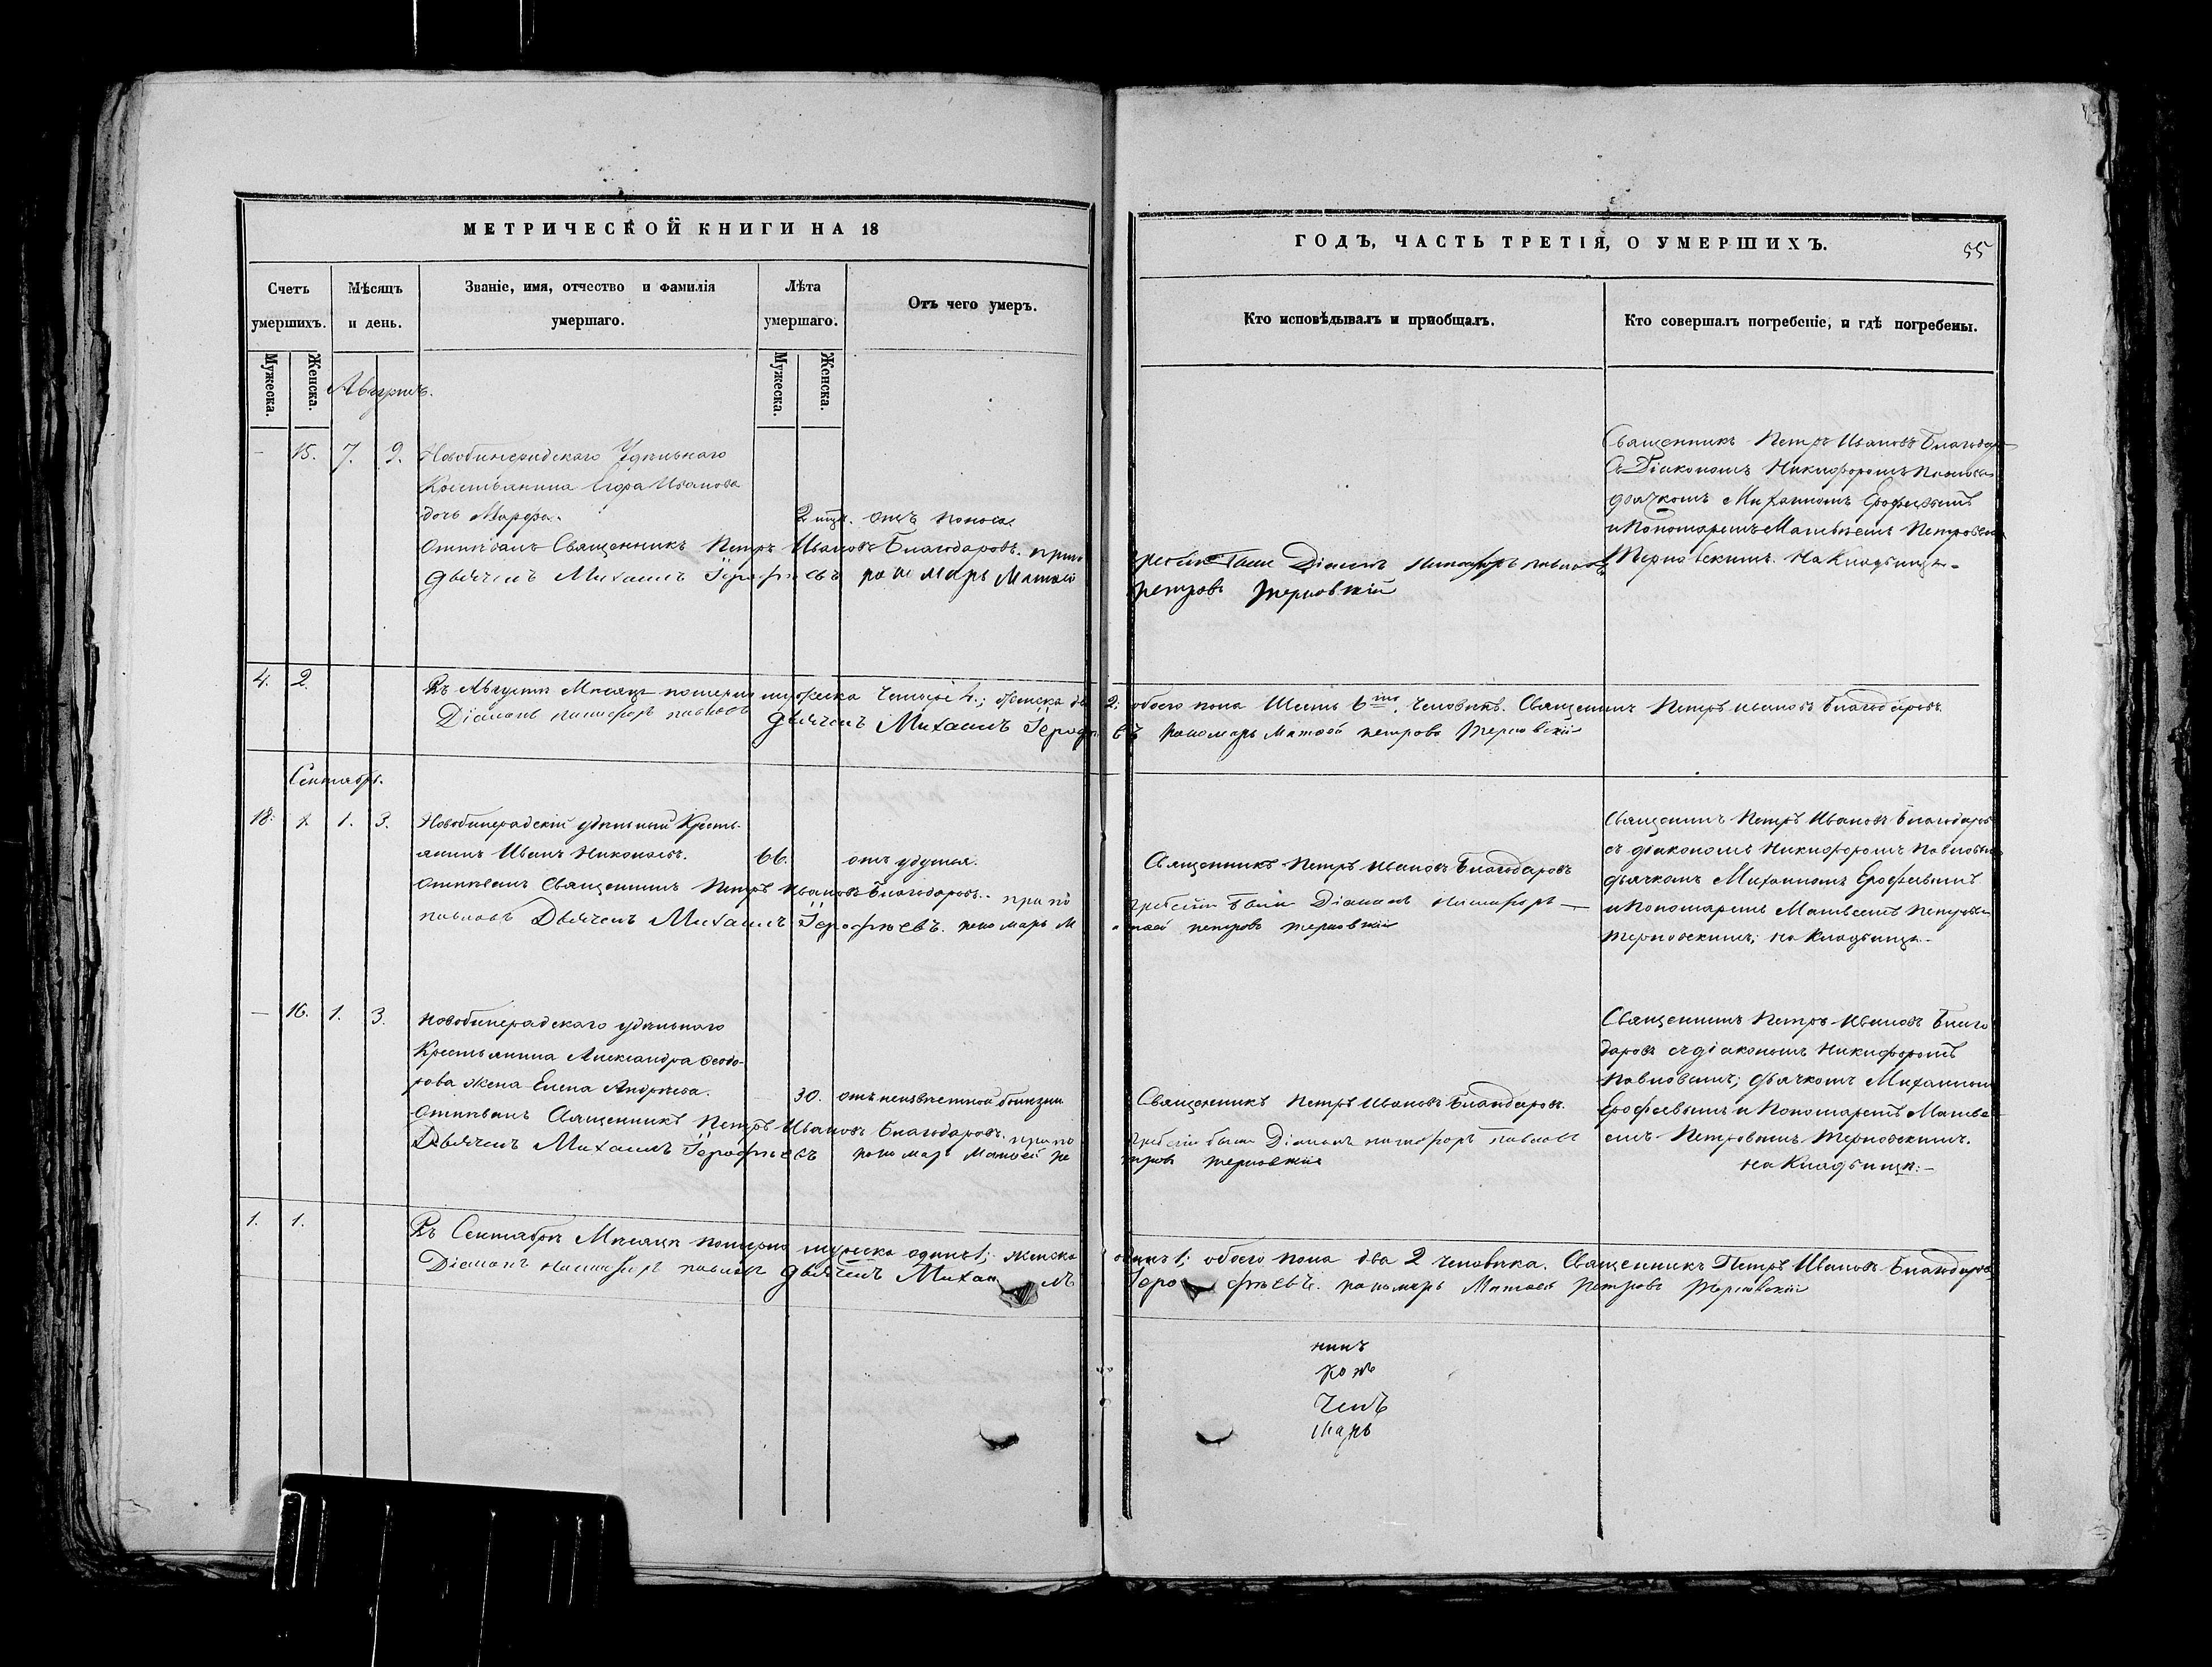 МЕТРИЧЕСКОЙ КНИГИ НА 18
Счетъ умершихъ.
Мѣсяцъ и день.
Званіе, имя, отчество и фамилія умершаго.
Лѣта умершаго.
Отъ чего умеръ.
Мужеска.
Женска.
Мужеска.
Женска.
Августъ.
— 15. 7. 9. Удѣльнаго
Крестьянина Егора Иванова
дочь Марфа. 2 отъ поноса
Отпѣвалъ Священникъ Петръ Ивановъ Благодаровъ. при по
Дьячекъ Михаилъ Іерофѣевъ пономарь Матвей
4. 2. Въ Августѣ Мѣсяцѣ померло мужеска четыре 4.; женска
Діаконъ Никифоръ Павловъ Дьячекъ Михаилъ Іероф
Сентябрь.
18. 1. 3. Новобинерадскій удѣльный Кресть-
янинъ Иванъ Николаевъ. 66. отъ удушья.
Отпѣвалъ Священникъ Петръ Ивановъ Благодаровъ. при по
Павловъ Дьячекъ Михаилъ Іерофѣевъ. пономарь М
— 16. 1. 3. Новобинерадскаго удѣльнаго
Крестьянина Александра Ѳеодо-
рова жена Елена Андрѣева. 30. отъ неизвѣстной болѣзни
Отпѣвалъ Священникъ Петръ Ивановъ Благодаровъ. при по
Дьячекъ Михаилъ Іерофѣевъ пономарь Матвей пе
1. 1. Въ Сентябрѣ Мѣсяцѣ померло мужеска одинъ 1; женска
Діаконъ Никифоръ Павловъ Дьячекъ Михаилъ
ГОДЪ, ЧАСТЬ ТРЕТІЯ, О УМЕРШИХЪ.
55
Кто исповѣдывалъ и пріобщалъ.
Кто совершалъ погребеніе, и гдѣ погребены.
Священникъ Петръ Ивановъ Благодар
съ Діакономъ Никифоромъ Павловы
дьячкомъ Михаиломъ Ерофеевымъ
и Пономаремъ Матвѣемъ Петровым
Терновскимъ. На Кладбище.
гребеніи были Діаконъ Никифоръ Павловъ
петровъ Терновскій
2; обоего пола Шесть 6ть. Человѣкъ. Священникъ Петръ Ивановъ Благодаровъ.
въ пономарь Матвей петровъ Терновскій
Священникъ Петръ Ивановъ Благодаровъ
гребеніи были Діаконъ Никифоръ —
твей петровъ терновскій
Священникъ Петръ Ивановъ Благодаровъ
съ діакономъ Никифоромъ Павловы
дьячкомъ Михаиломъ Ерофеевымъ
и Пономаремъ Матвеемъ Петровы
Терновскимъ; на Кладбище.
Священникъ Петръ Ивановъ Благодаровъ.
гребеніи были Діаконъ Никифоръ Павловъ
тровъ терновскій
Священникъ Петръ Ивановъ Благо
даровъ съ діакономъ Никифоромъ
Павловымъ; дьячкомъ Михаиломъ
Ерофеевымъ и Пономаремъ Матве
емъ Петровымъ Терновскимъ.
на Кладбищѣ:—
одинъ 1; обоего пола два 2 человѣка. Священникъ Петръ Ивановъ Благодаровъ
Іерофѣевъ. пономарь Матвей Петровъ Терновскій
никъ